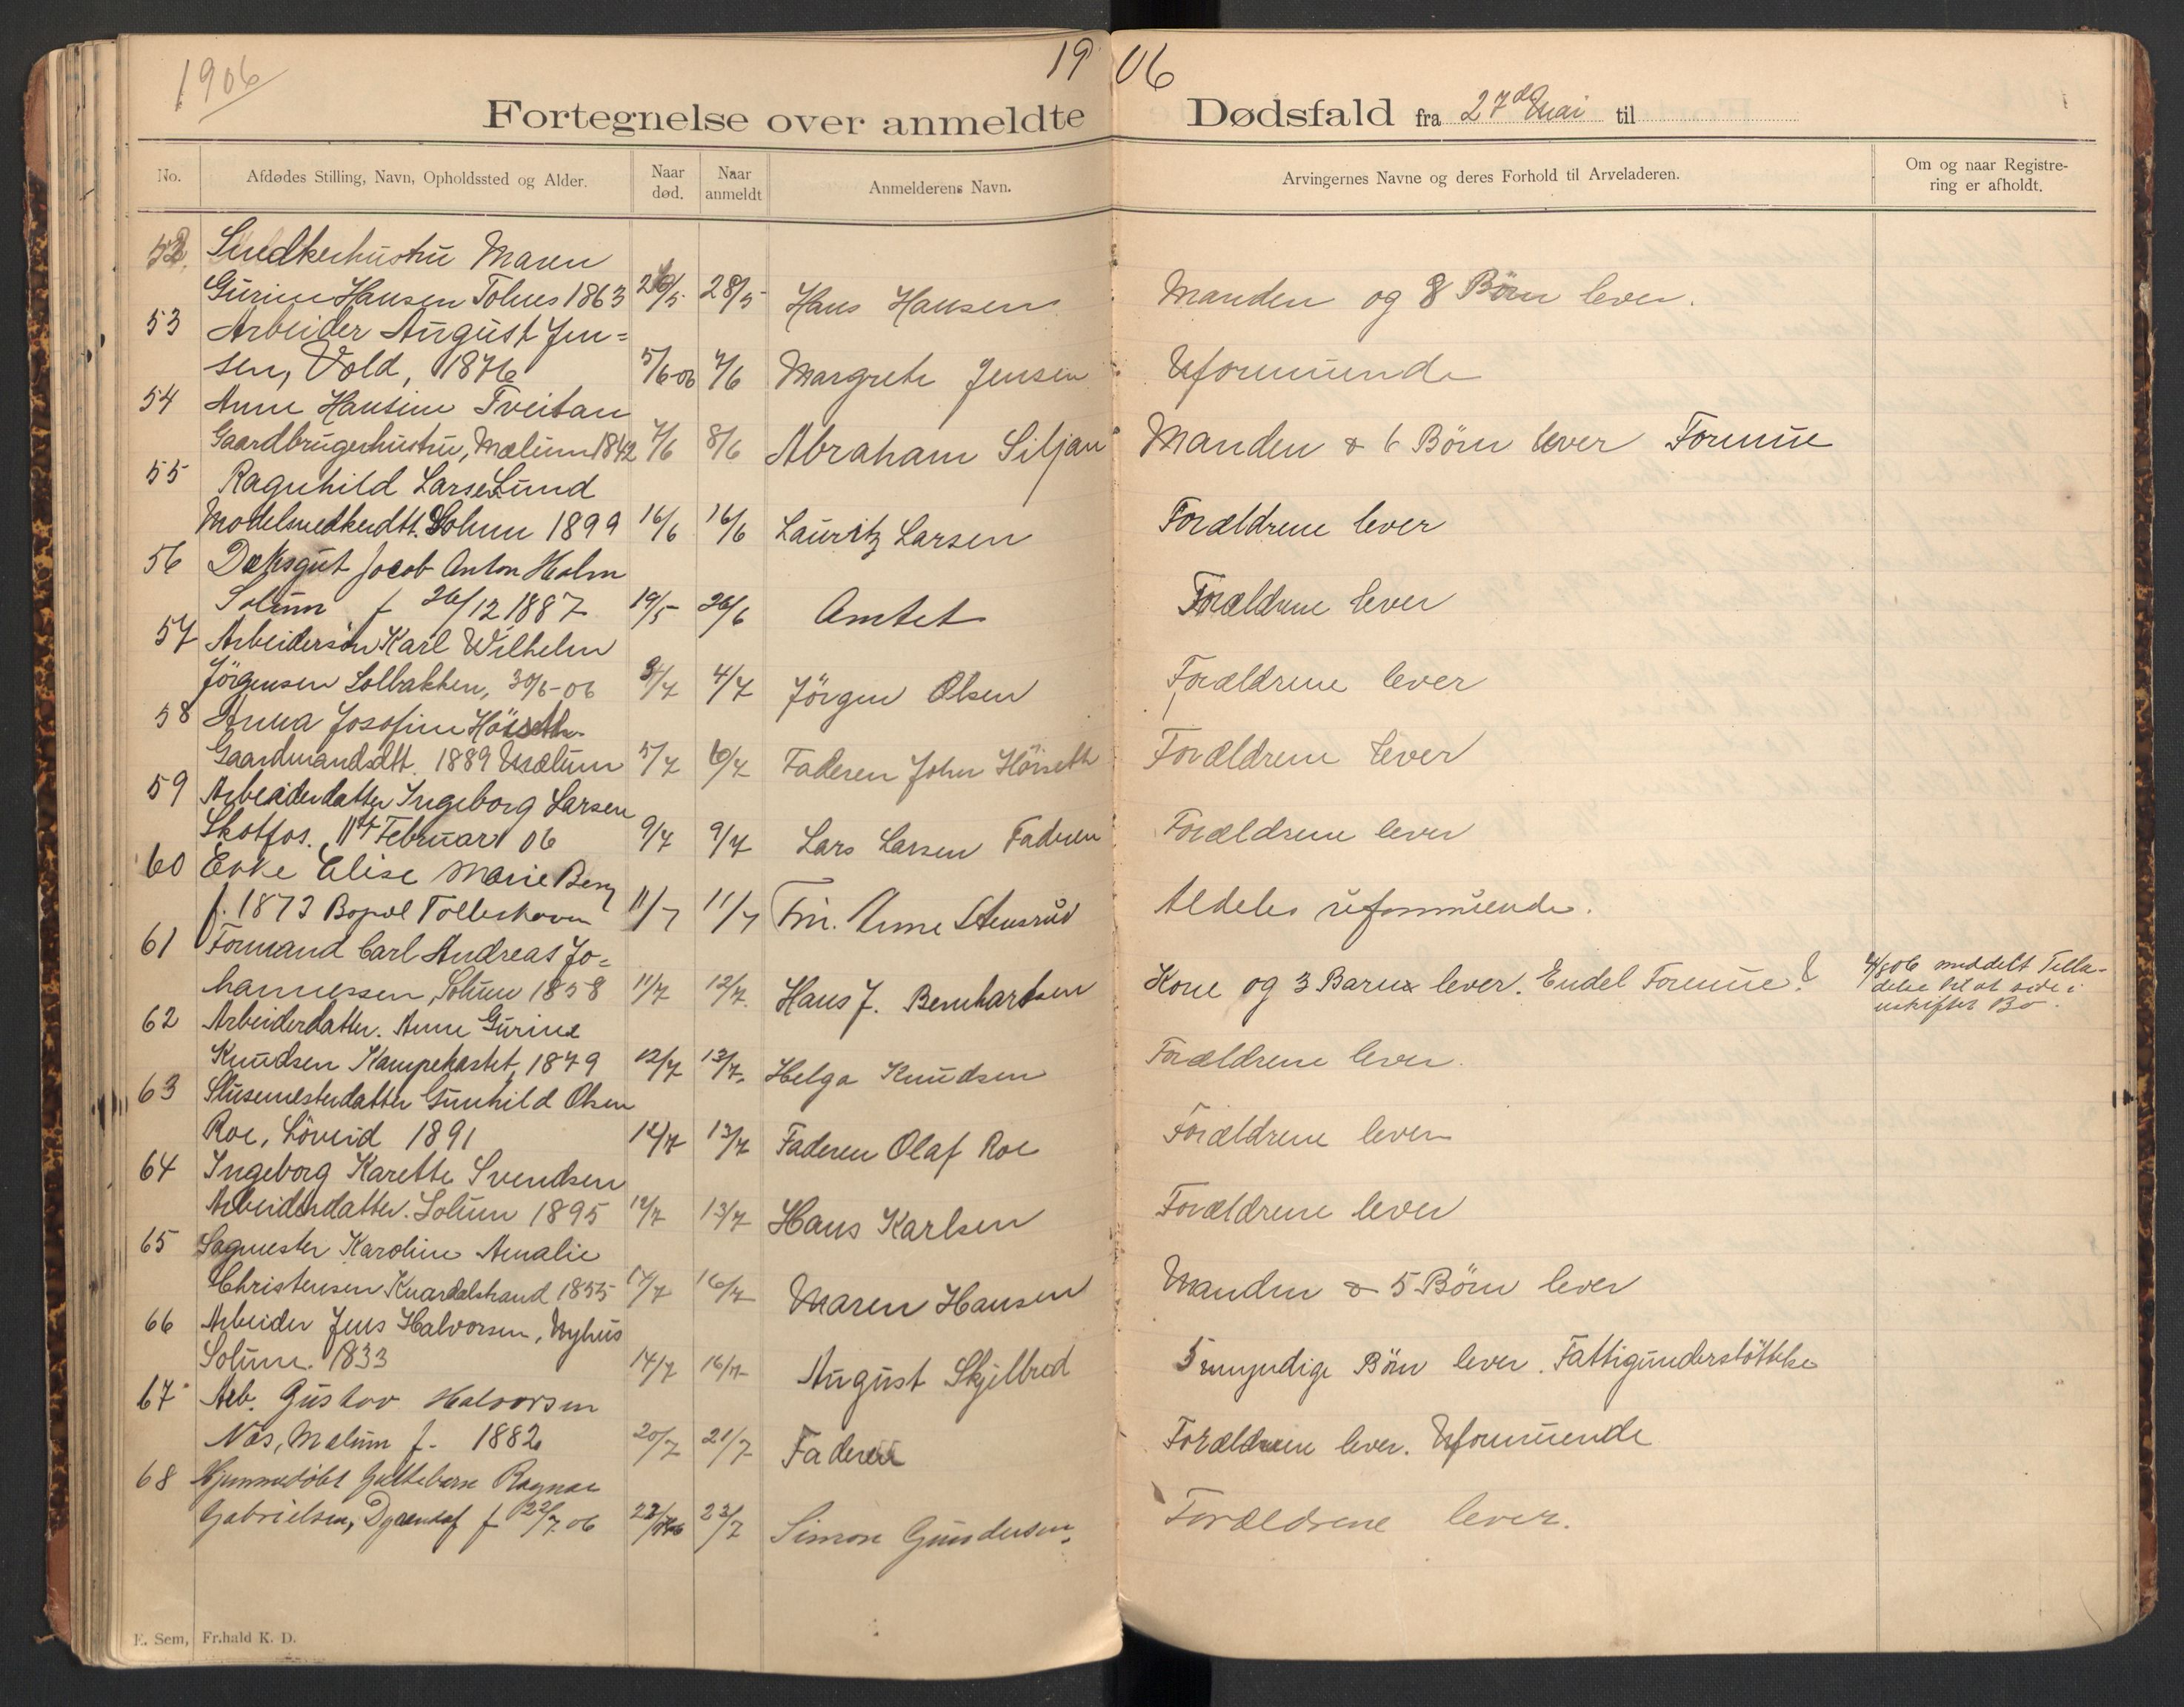 1906
19 06
Fortegnelse over anmeldte Dødsfald fra 27de Mai til
No. Afdødes Stilling, Navn, Opholdssted og Alder. Naar død. Naar anmeldt Anmelderens Navn. Arvingernes Navne og deres Forhold til Arveladeren. Om og naar Registrering er afholdt.
52. Snedkerhustru Maren
Gurine Hansen Tolnes 1863 26/5 28/5 Hans Hansen Manden og 8 Børn lever.
53 Arbeider August Jen=
sen, Vold, 1876 5/6-06 7/6 Margrete Jensen Uformuende
54 Anne Hansine Tveitan
Gaardbrugerhustru, Mælum 1842 7/6 8/6 Abraham Siljan Manden & 6 Børn lever Formue
55 Ragnhild Larsen Lund
Modelsnedkerdtt. Solum 1899 16/6 16/6 Lauritz Larsen Forældrene lever
56 Dæksgut Jacob Anton Holm
Solum f 26/12 1887 19/5 26/6 Amtet Forældrene lever
57 Arbeidersøn Karl Wilhelm
Jörgensen Solbakken, 30/6-06 3/7 4/7 Jörgen Olsen Forældrene lever
58 Anna Josofine Höiseth
Gaardmandsdtt. 1889 Mælum 5/7 6/7 Faderen John Höiseth Forældrene lever
59 Arbeiderdatter Ingeborg Larsen
Skotfos. 11te Februar 06 9/7 9/7 Lars Larsen Faderen Forældrene lever
60 Enke Elise Marie Berg
f. 1873 Bopæl Tolleshoven 11/7 11/7 Frn. Anne Stensrud Aldeles uformuende.
61 Formand Carl Andreas Jo=
hannessen, Solum 1858 11/7 12/7 Hans J. Bernhardsen Kone og 3 Barn lever. Endel Formue? 4/8 06 meddelt Tilla-
delse til at side i
uskiftet Bo.
62 Arbeiderdatter. Anne Gurine
Knudsen Kampekastet, 1879 12/7 13/7. Helga Knudsen Forældrene lever.
63 Slusemesterdatter Gunhild Olsen
Roe, Löveid 1891 12/7 13/7 Faderen Olaf Roe Forældrene lever
64 Ingeborg Karette Svendsen
Arbeiderdatter. Solum 1895 12/7 13/7 Hans Karlsen Forældrene lever
65 Sagmester Karoline Amalie
Christensen Knardalstrand 1855 14/7 16/7 Maren Hansen Manden & 5 Børn lever
66 Arbeider Jens Halvorsen, Nyhus
Solum. 1833 14/7 16/7 August Skjelbred 5 myndige Börn lever. Fattigunderstöttelse
67 Arb. Gustav Halvorsen
Næs, Mælum f. 1882 20/7 21/7 Faderen Forældrene lever. Uformuende
68 Hjemmedøbt Guttebarn Ragnar
Gabrielsen, f 22/7 06 22/7 06 23/7 Simon Gundersen. Forældrene lever.
E. Sem, Fr.hald K. D.